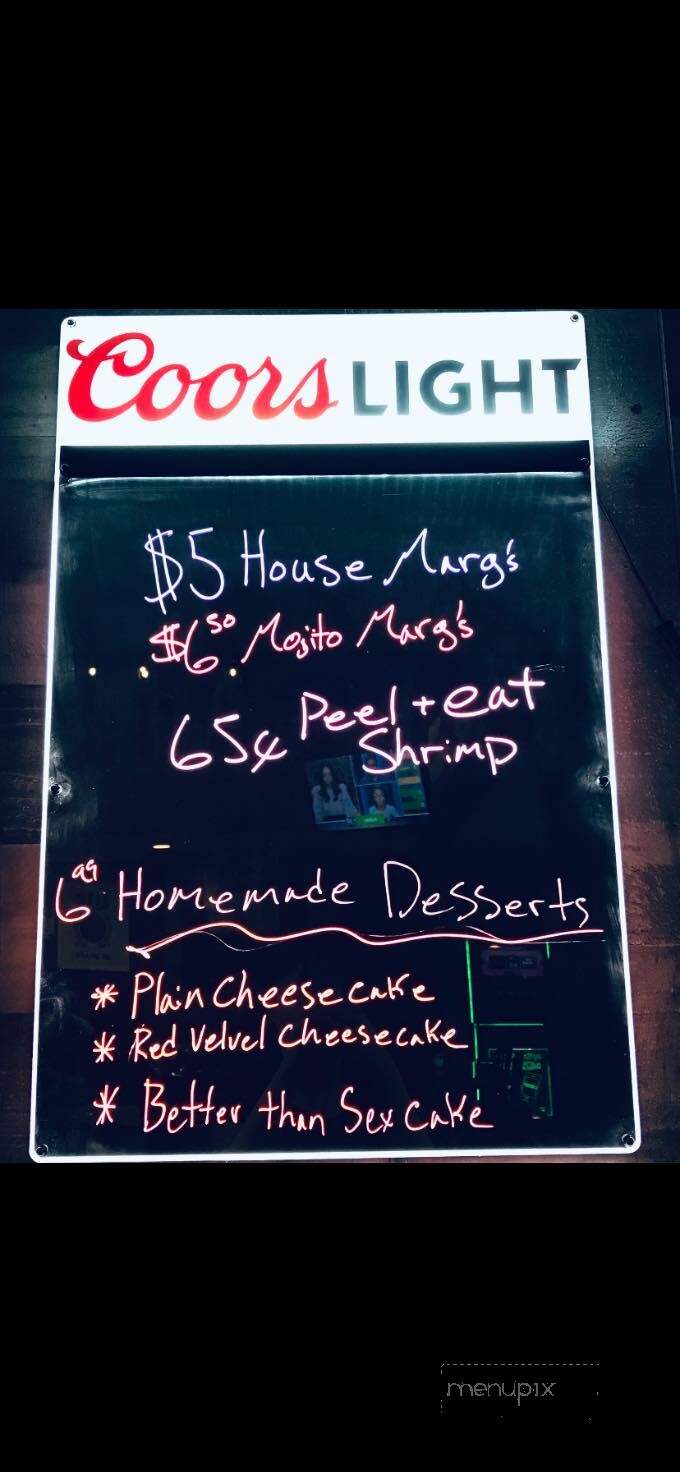 Coors LIGHT
$5 House Marg's
$6.50 Mojito Marg's
65¢ Peel + eat
Shrimp
6.99 Homemade Desserts
* Plain Cheesecake
* Red Velvel Cheesecake
* Better than Sex Cake
menupix